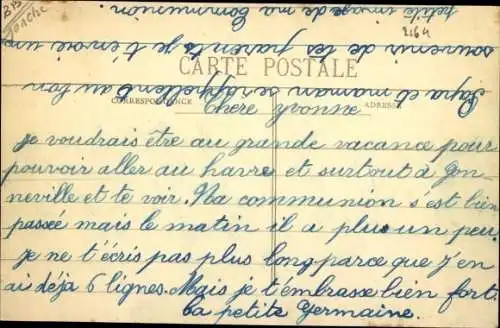 CARTE POSTALE
CORRESPONDANCE
ADRESSE
2164
Chere Yvonne
je voudrais être au grande vacance pour
pouvoir aller au havre et surtout à Gon-
neville et te voir. Ma communion s'est bien
passée mais le matin il a plus un peu
je ne t'écris pas plus long parce que j'en
ai déjà 6 lignes. Mais je t'embrasse bien fort.
La petite Germaine.
Papa et maman se rappellent au bon
souvenir de tes parents je t'envoie une
petite image de ma Communion